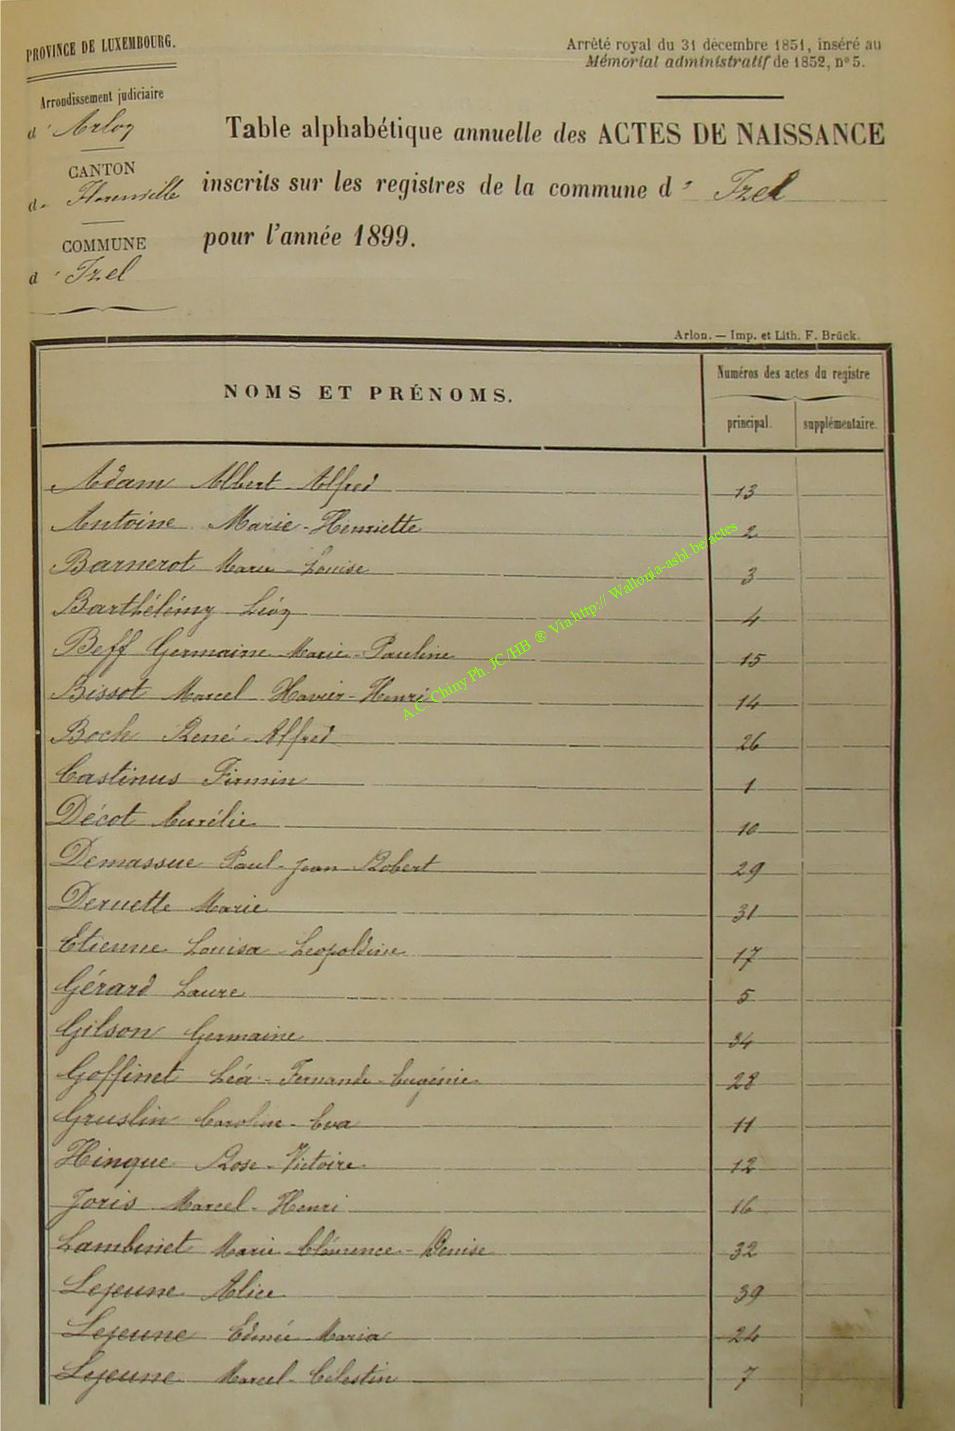 PROVINCE DE LUXEMBOURG.
Arrêté royal du 31 décembre 1851, inséré au
Mémorial administratif de 1852, n° 5.
Arrondissement judiciaire
d' Arlon
CANTON
de Florenville
COMMUNE
d' Izel
Table alphabétique annuelle des ACTES DE NAISSANCE
inscrits sur les registres de la commune d' Izel
pour l'année 1899.
Arlon. — Imp. et Lith. F. Brück.
NOMS ET PRÉNOMS.
Numéros des actes du registre
principal. supplémentaire.
Adam Albert Alfred 13
Antoine Marie-Henriette 2
Barnerot Marie-Louise 3
Barthélémy Léon 4
Beff Germaine Marie-Pauline 15
Bissot Marcel Xavier-Henri 14
Boch René-Alfred 26
Castinus Firmin 1
Décot Aurélie 10
Demassue Paul-Jean Robert 29
Deruette Marie 31
Etienne Louisa-Léopoldine 17
Gérard Laure 5
Gilson Germaine 34
Goffinet Léa-Fernande-Eugénie 28
Gruslin Caroline-Eva 11
Hinque Rose-Victoire 12
Joris Marcel-Henri 16
Lambinet Marie Clémence-Denise 32
Lejeune Alice 39
Lejeune Edmée Maria 24
Lejeune Marcel-Célestin 7
A.C. Chiny Ph. JC/HB ® Via.http:// Wallonia-asbl.be/actes